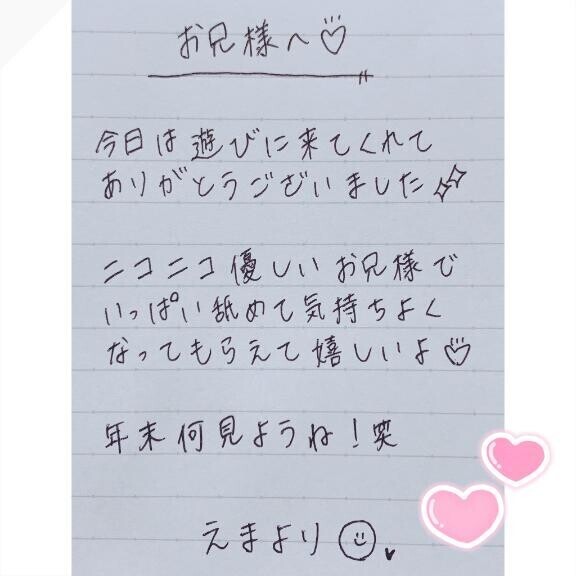 お兄様へ♡
今日は遊びに来てくれて
ありがとうございました✨
ニコニコ優しいお兄様で
いっぱい舐めて気持ちよく
なってもらえて嬉しいよ♡
年末何見ようね！笑
えまより☺♥